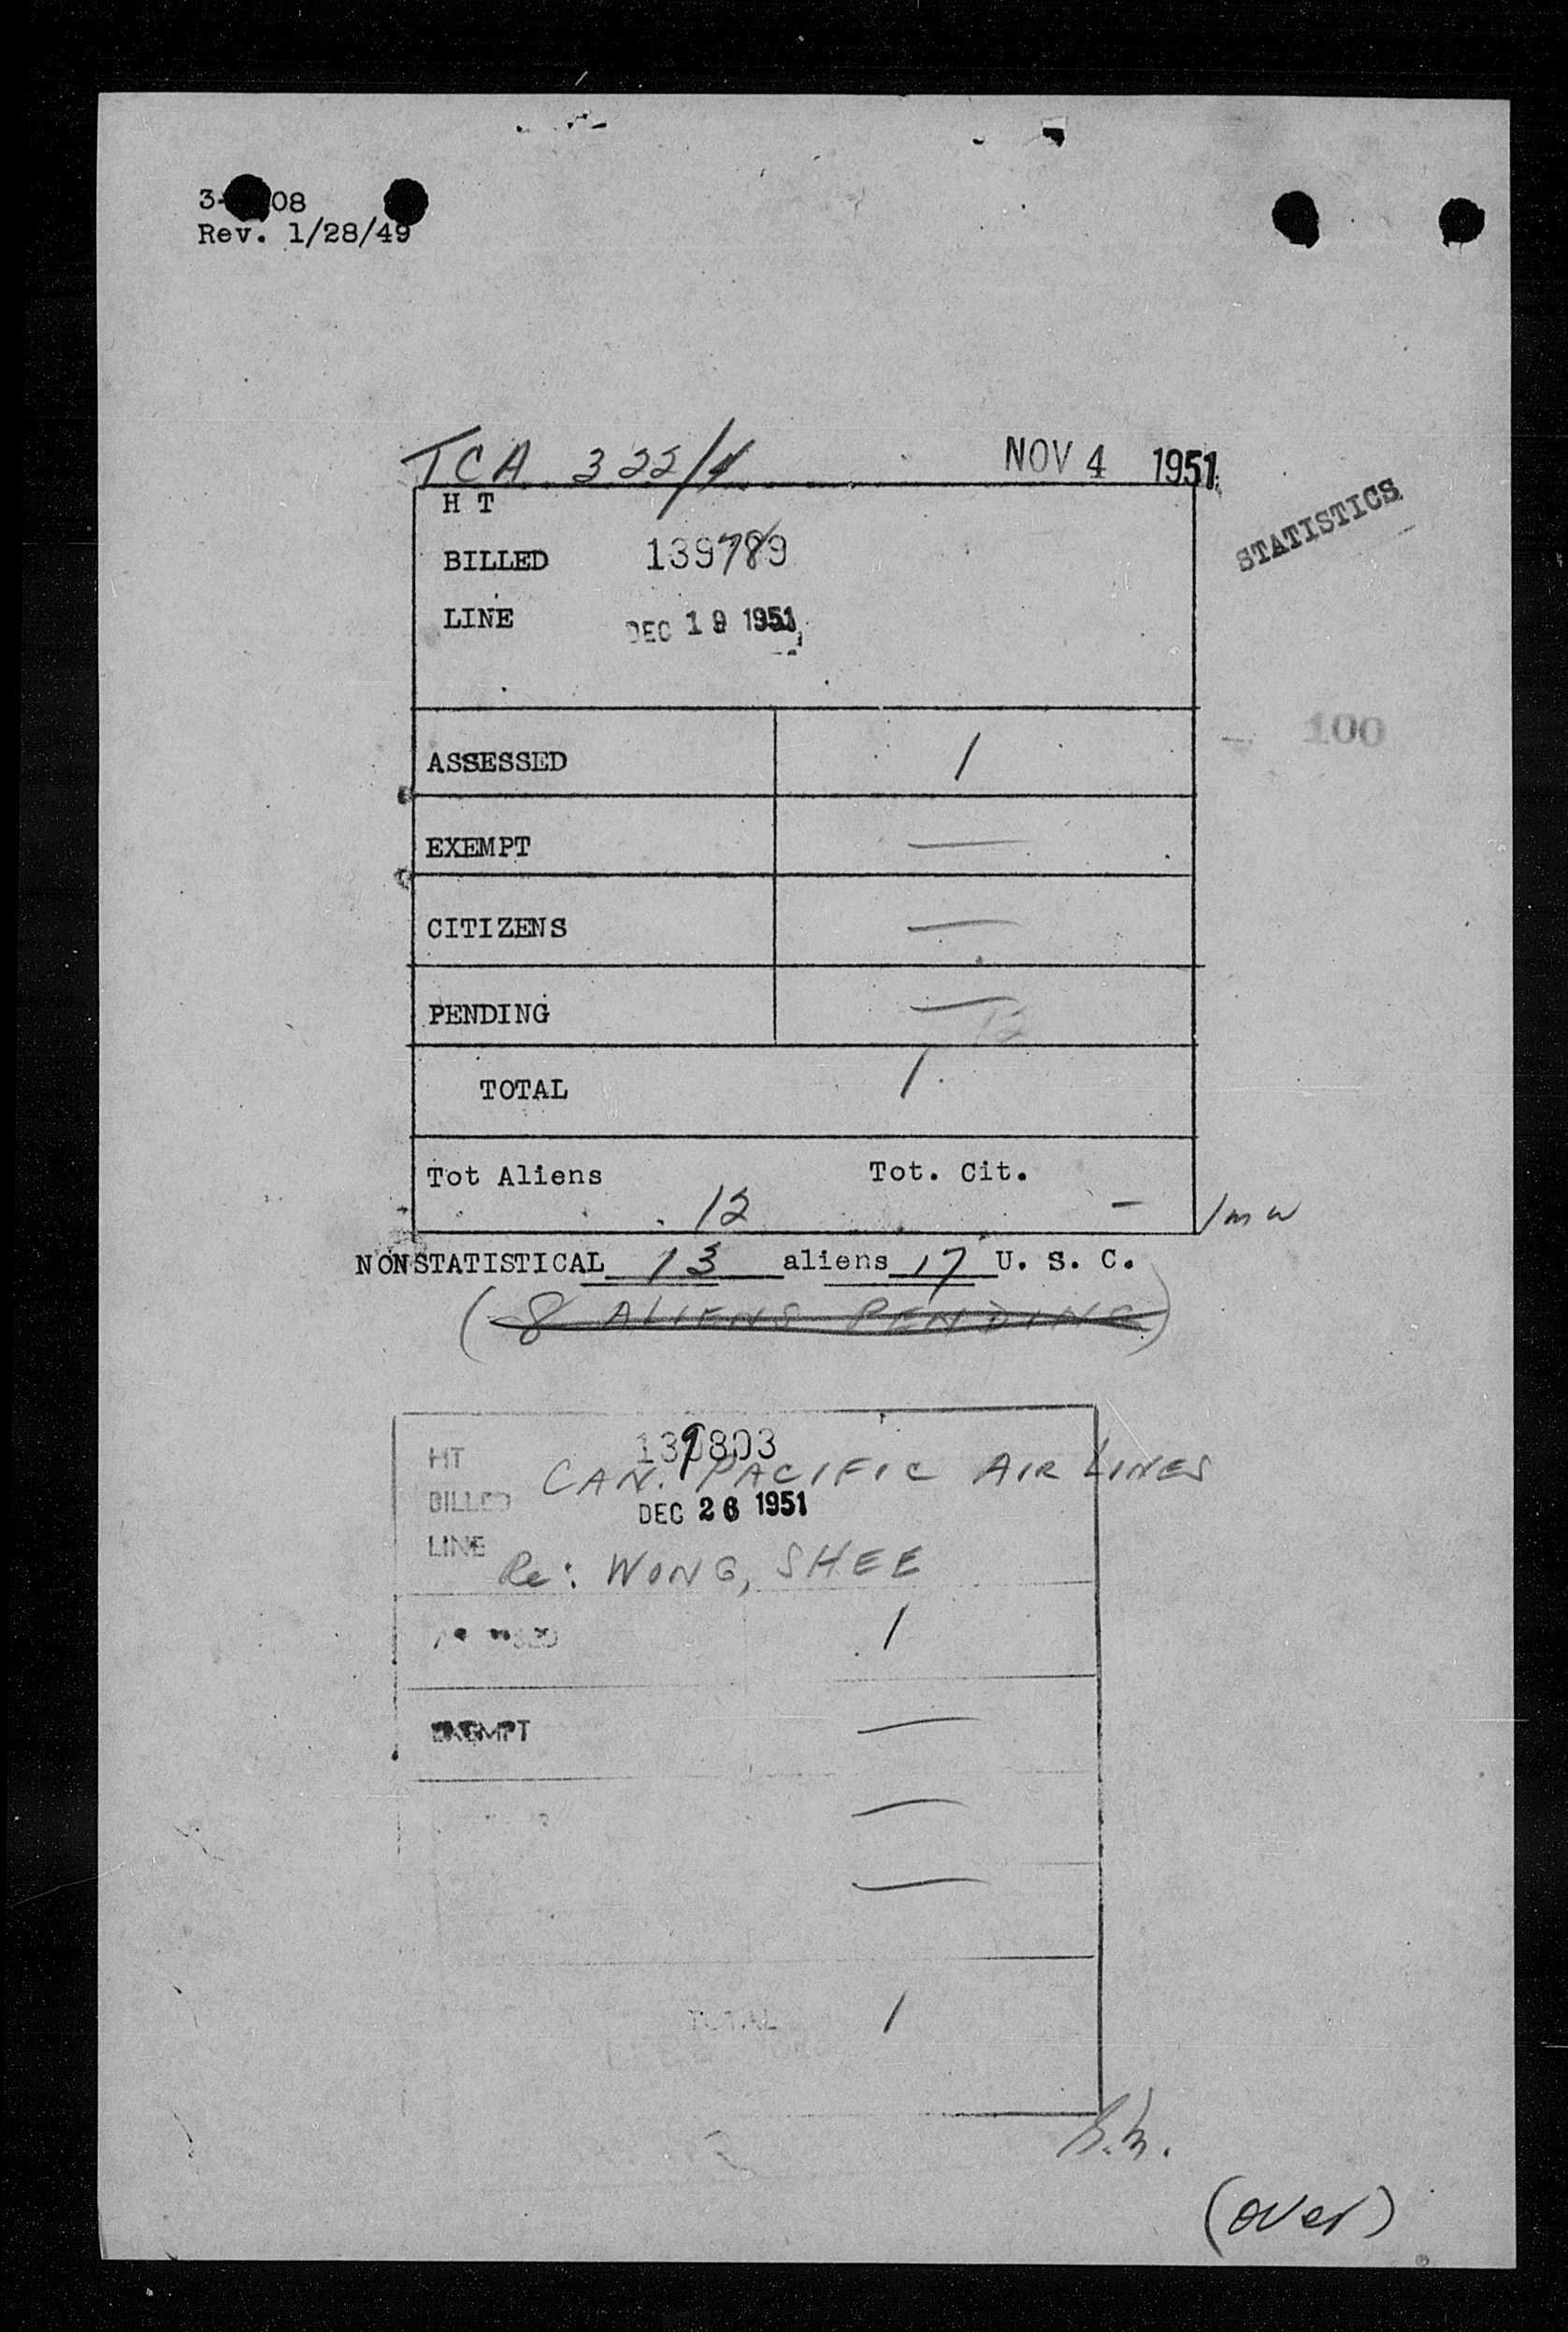 3- 08
Rev. 1/28/49
TCA 322/4 NOV 4 1951
H T
BILLED 139789
STATISTICS
LINE DEC 19 1951
100
ASSESSED 1
EXEMPT —
CITIZENS —
PENDING —
TOTAL 1
Tot Aliens Tot. Cit.
12 –
NONSTATISTICAL 13 aliens 17 U. S. C.
(8 ALIENS PENDING)
HT 139803
CAN. PACIFIC AIR LINES
BILLED DEC 26 1951
LINE
Re: WONG, SHEE
1
EXEMPT —
—
—
TOTAL 1
(over)